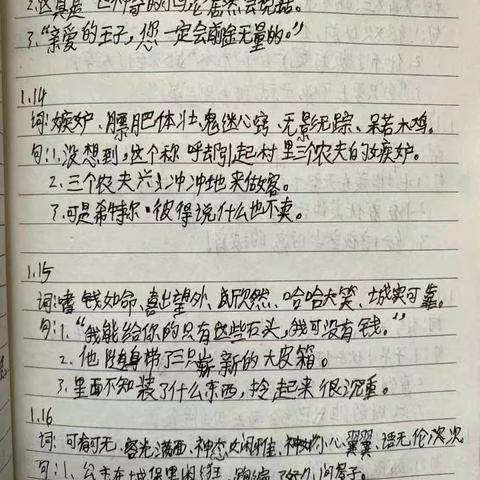 2.这真是一个奇的鸟它居然会说话。
3."亲爱的王子,您一定会前途无量的。"
1.14
词:嫉妒、膘肥体壮、鬼迷心窍、无影无踪、呆若木鸡。
句:1.没想到,这个称呼却引起村里三个农夫的嫉妒。
2.三个农夫兴冲冲地来做客。
3.可是希特尔·彼得说什么也不卖。
1.15
词:嗜钱如命、喜出望外、欣然、哈哈大笑、城实可靠。
句:1."我能给你的只有这些石头,我可没有钱。"
2.他随身带了三只崭新的大皮箱。
3.里面不知装了什么东西,拎起来很沉重。
1.16
词:可有可无、容光满面、神态、小心翼翼、语无伦次
句:1.公主在城堡里闲逛,跑遍了屋子。